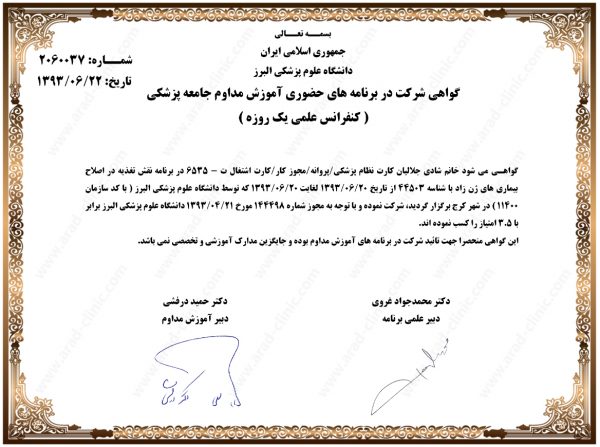 بسمه تعالی
جمهوری اسلامی ایران
دانشگاه علوم پزشکی البرز
شماره: ۲۰۶۰۰۳۷
تاریخ: ۱۳۹۳/۰۶/۲۲
گواهی شرکت در برنامه های حضوری آموزش مداوم جامعه پزشکی
( کنفرانس علمی یک روزه )
گواهی می شود خانم شادی جلالیان کارت نظام پزشکی/پروانه/مجوز کار/کارت اشتغال ت - ۶۵۳۵ در برنامه نقش تغذیه در اصلاح
بیماری های ژن زاد با شناسه ۴۴۵۰۳ از تاریخ ۱۳۹۳/۰۶/۲۰ لغایت ۱۳۹۳/۰۶/۲۰ که توسط دانشگاه علوم پزشکی البرز ( با کد سازمان
۱۱۴۰۰) در شهر کرج برگزار گردید، شرکت نموده و با توجه به مجوز شماره ۱۴۴۴۹۸ مورخ ۱۳۹۳/۰۴/۲۱ دانشگاه علوم پزشکی البرز برابر
با ۳.۵ امتیاز را کسب نموده اند.
این گواهی منحصرا جهت تائید شرکت در برنامه های آموزش مداوم بوده و جایگزین مدارک آموزشی و تخصصی نمی باشد.
دکتر محمدجواد غروی
دبیر علمی برنامه
دکتر حمید درفشی
دبیر آموزش مداوم
www.arad-clinic.com